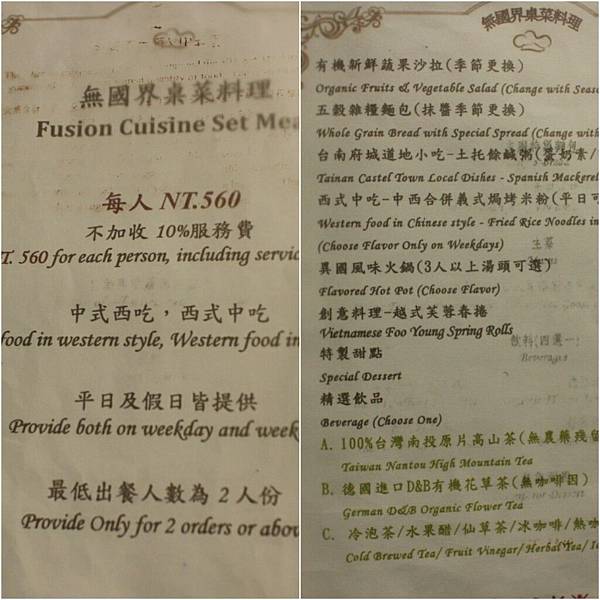 無國界桌菜料理
Fusion Cuisine Set Mea
每人 NT.560
不加收 10%服務費
T. 560 for each person, including servic
中式西吃，西式中吃
food in western style, Western food in
平日及假日皆提供
Provide both on weekday and week
最低出餐人數為 2 人份
Provide Only for 2 orders or abov
無國界桌菜料理
有機新鮮蔬果沙拉(季節更換)
Organic Fruits & Vegetable Salad (Change with Seaso
五穀雜糧麵包(抹醬季節更換)
Whole Grain Bread with Special Spread (Change with
台南府城道地小吃-土托餘鹹粥(蛋奶素/
Tainan Castel Town Local Dishes - Spanish Mackerel
西式中吃-中西合併義式焗烤米粉(平日可
Western food in Chinese style - Fried Rice Noodles in
(Choose Flavor Only on Weekdays)
異國風味火鍋(3人以上湯頭可選)
Flavored Hot Pot (Choose Flavor)
創意料理-越式芙蓉春捲
Vietnamese Foo Young Spring Rolls
特製甜點
Special Dessert
精選飲品
Beverage (Choose One)
A. 100%台灣南投原片高山茶(無農藥殘留
Taiwan Nantou High Mountain Tea
B. 德國進口D&B有機花草茶(無咖啡因)
German D&B Organic Flower Tea
C. 冷泡茶/水果醋/仙草茶/冰咖啡/熱咖
Cold Brewed Tea/ Fruit Vinegar/ Herbal Tea/ Ic